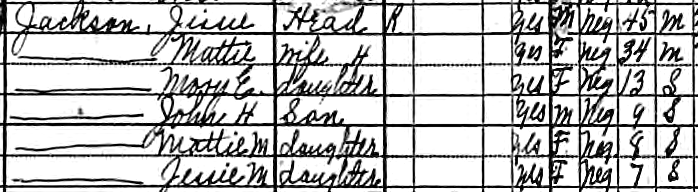 Jackson, Jessie Head R Yes M Neg 45 M
Mattie Wife H Yes F Neg 34 M
Mary E. daughter Yes F Neg 13 S
John H Son Yes M Neg 9 S
Mattie M daughter Yes F Neg 8 S
Jessie M daughter Yes F Neg 7 S